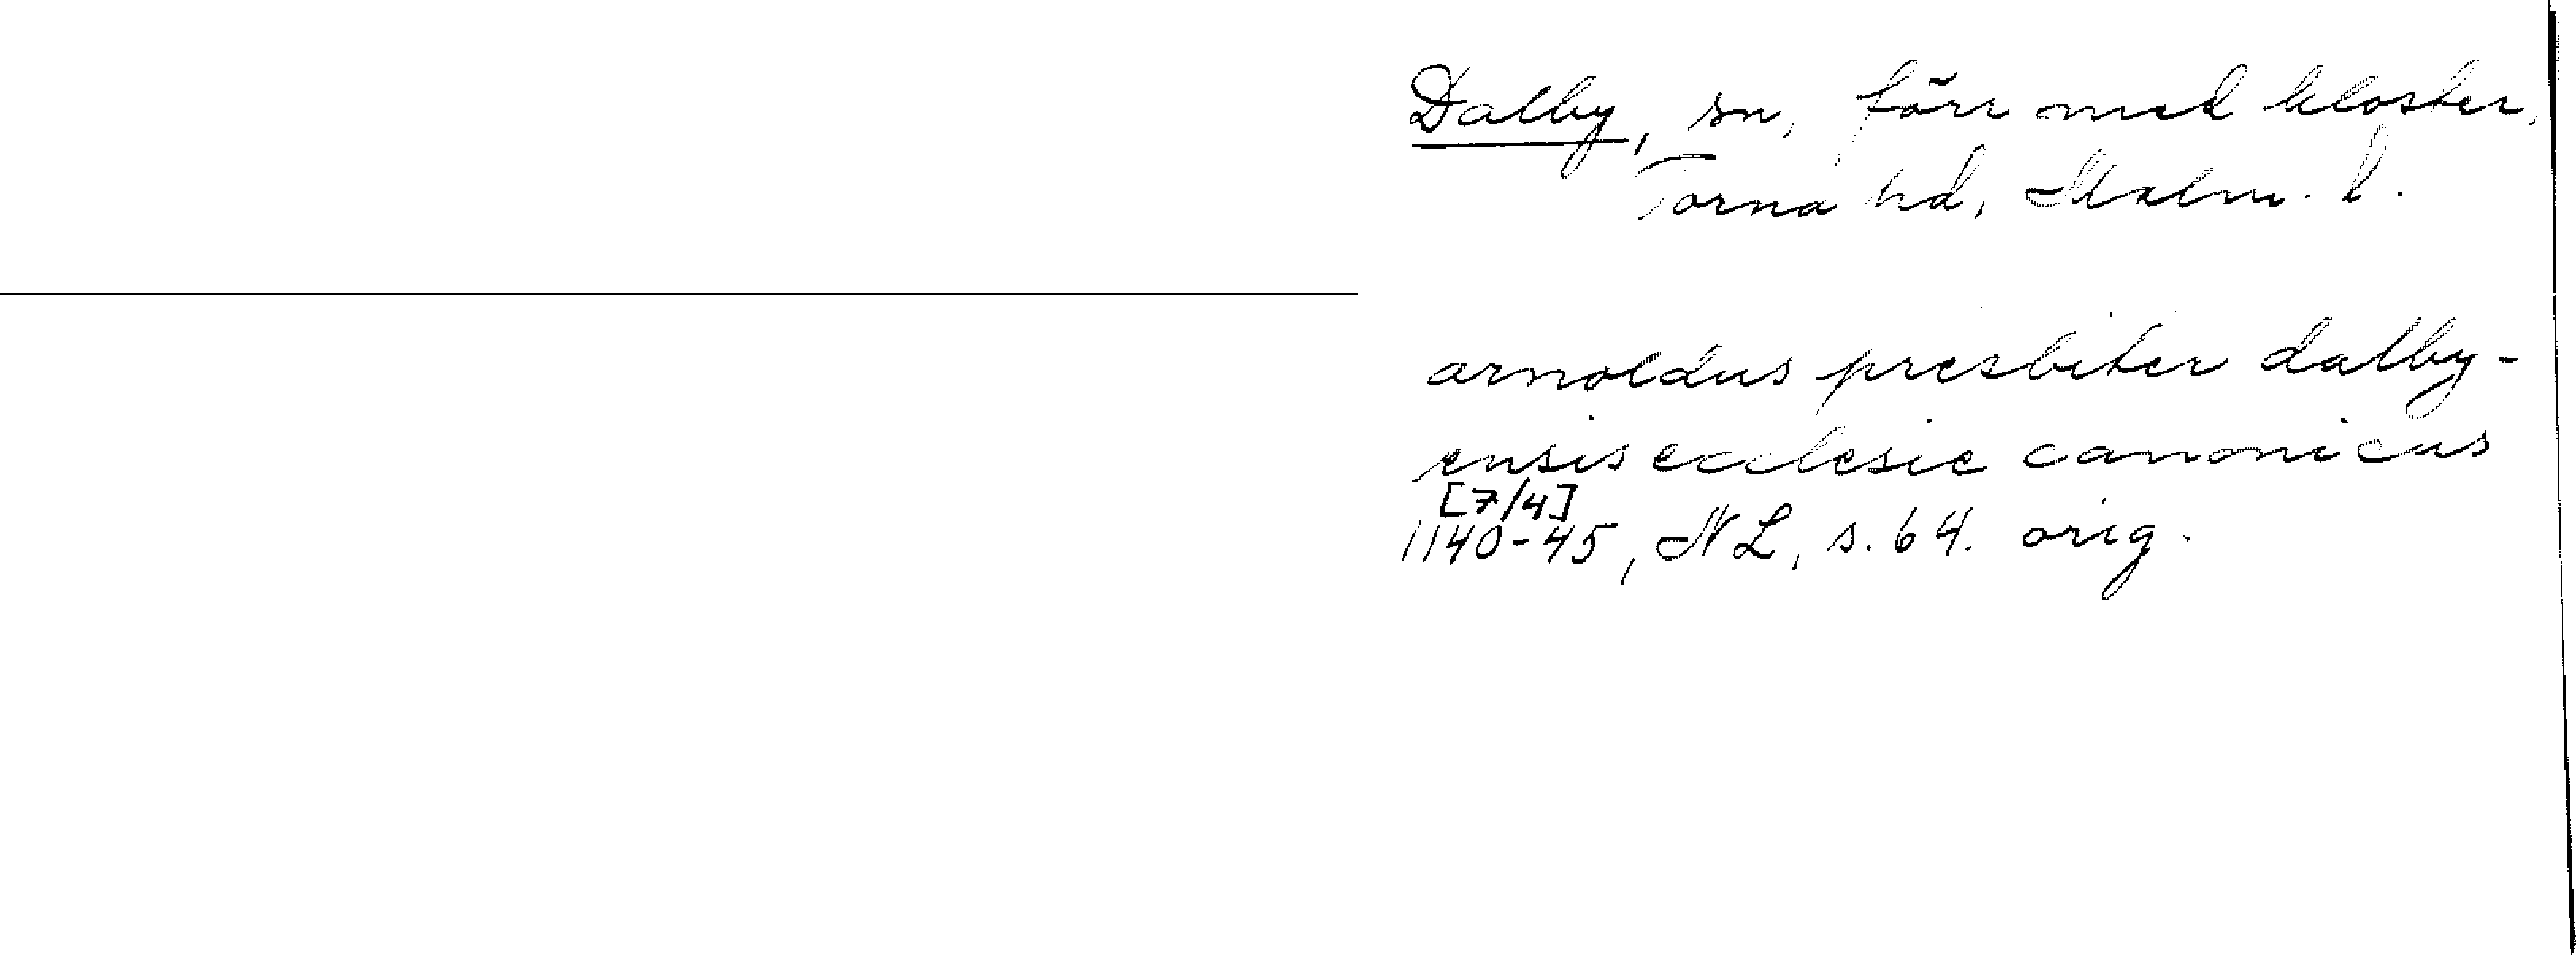 Dalby, sn, förr med kloster,
Torna hd, Malm. l.
arnoldus presbiter dalby-
ensis ecclesie canonicus
[7/4]
1140-45, NL, s. 64. orig.